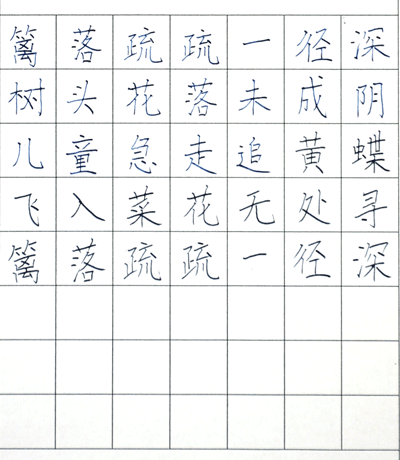 篱落疏疏一径深
树头花落未成阴
儿童急走追黄蝶
飞入菜花无处寻
篱落疏疏一径深